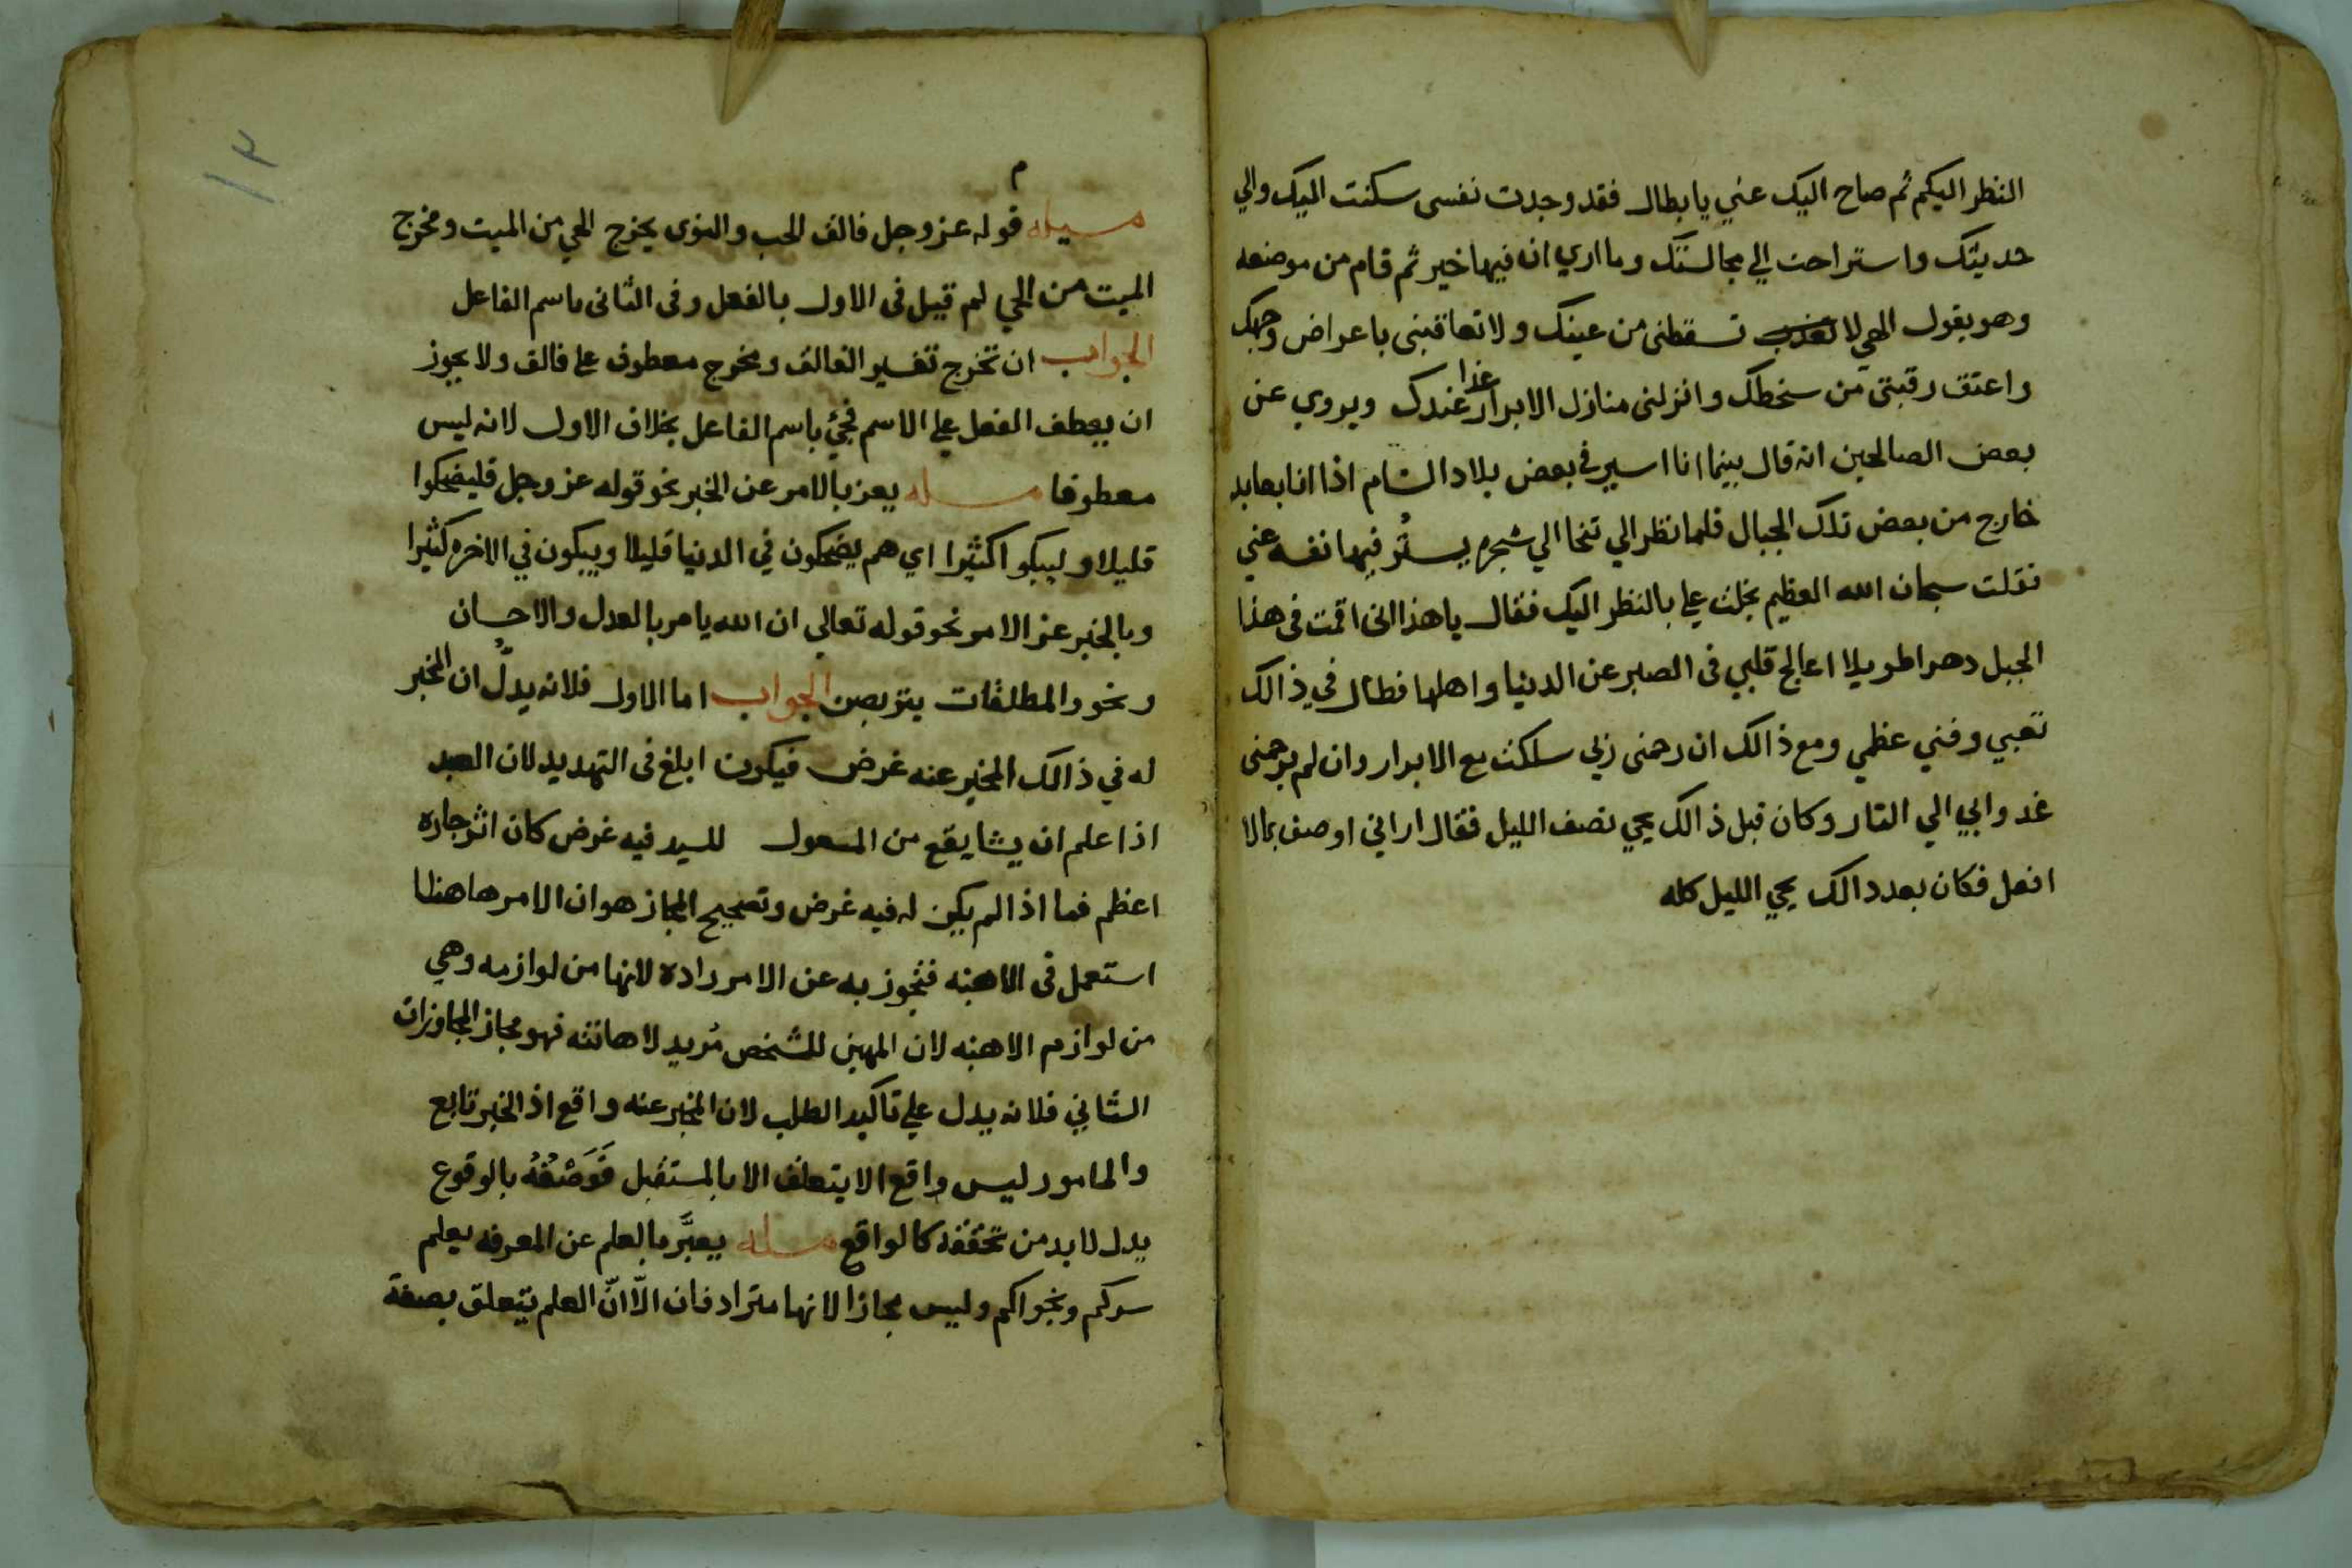 النظر اليكم ثم صاح اليك عني يا بطال فقد وجدت نفسى سكنت اليك والي
حديثك واستراحت الي مجالستك وما اري ان فيها خير ثم قام من موضعه
وهو يقول الهي لا تسقطنى من عينك ولا تعاقبنى باعراض وجهك
واعتق رقبتى من سخطك وانزلنى منازل الابرار غدا عندك ويروي عن
بعض الصالحين انه قال بينما انا اسير في بعض بلاد الشام اذا انا بعابد
خارج من بعض تلك الجبال فلما نظر الي تنحا الي شجره يستر فيها نفسه عني
فقلت سبحان الله العظيم بخلت علي بالنظر اليك فقال يا هذا انى اقمت فى هذا
الجبل دهرا طويلا اعالج قلبي فى الصبر عن الدنيا واهلها فطال في ذالك
تعبي وفني عظمي ومع ذالك ان رحمنى ربي سلكت مع الابرار وان لم يرحمنى
غدوا بي الي النار وكان قبل ذالك يحي نصف الليل فقال اراني اوصف بما لا
افعل فكان بعد دالك يحي الليل كله
١٣
م
مسيله قوله عز وجل فالق الحب والنوى يخرج الحي من الميت ومخرج
الميت من الحي لم قيل فى الاول بالفعل وفى الثانى باسم الفاعل
الجواب ان تخرج تفسير الفالق ومخرج معطوف علي فالق ولا يجوز
ان يعطف الفعل علي الاسم فجئ باسم الفاعل بخلاف الاول لانه ليس
معطوفا مسله يعبر بالامر عن الخبر نحو قوله عز وجل فليضحكوا
قليلا وليبكوا كثيرا اي هم يضحكون في الدنيا قليلا ويبكون في الاخره كثيرا
وبالخبر عن الامر نحو قوله تعالي ان الله يامر بالعدل والاحسان
ونحو والمطلقات يتربصن الجواب اما الاول فلانه يدلُّ ان المخبر
له في ذالك المخبر عنه غرض فيكون ابلغ فى التهديد لان العبد
اذا علم ان يشا يقع من المسعول للسيد فيه غرض كان اثر جاره
اعظم فما اذا لم يكن له فيه غرض وتصحيح المجاز هو ان الامر هاهنا
استعمل فى الاهنه فتجوز به عن الامر راده لانها من لوازمه وهي
من لوازم الاهنه لان المهين للشخص مُريد لاهانته فهو مجاز المجاوزات
الثاني فلانه يدل علي تاكيد الطلب لان المخبر عنه واقع اذ الخبر تابع
والمامور ليس واقع الا يتعلق الا بالمستقبل فَوَصْفُهُ بالوقوع
يدل لا بد من تحققه كالواقع مسله يعبَّر بالعلم عن المعرفه يعلم
سركم ونجواكم وليس مجازا لانها مترادفان الّا انّ العلم يتعلق بصفة